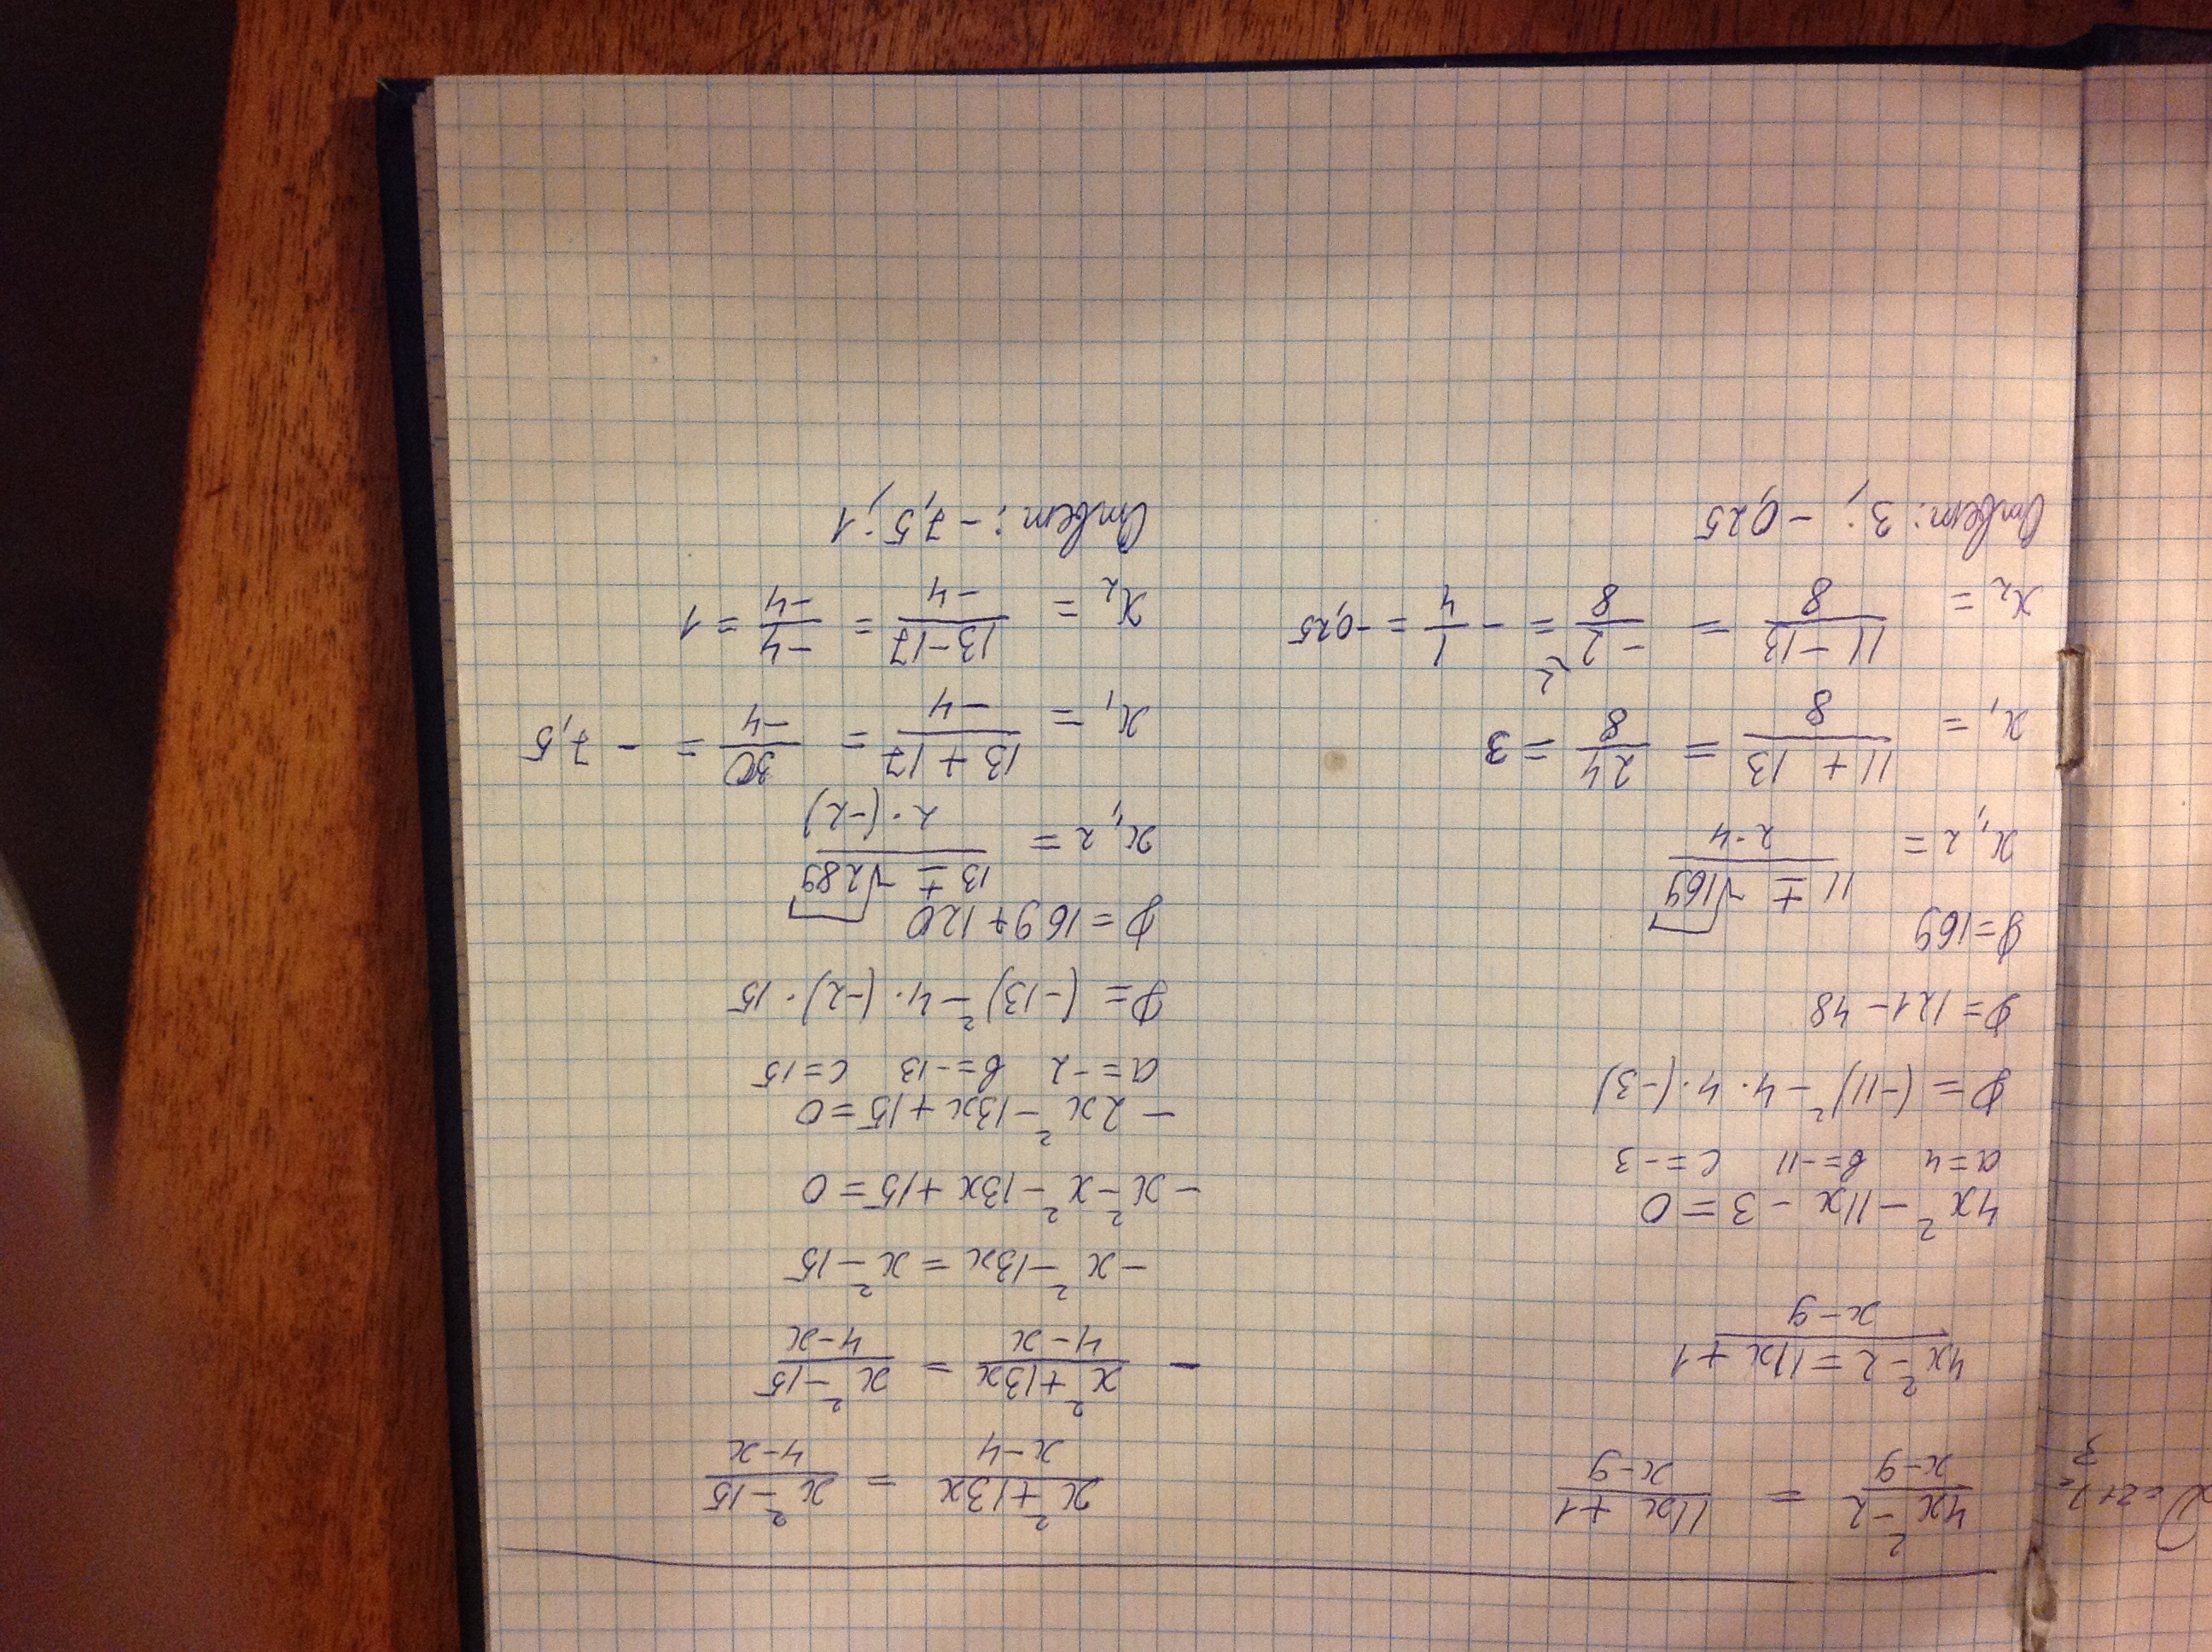 4x² - 2 / x - 9 = 11x + 1 / x - 9
4x² - 2 = 11x + 1 / x - 9
4x² - 11x - 3 = 0
a = 4 b = -11 c = -3
D = (-11)² - 4 · 4 · (-3)
D = 121 - 48
D = 169
x1,2 = 11 ± √169 / 2 · 4
x1 = 11 + 13 / 8 = 24 / 8 = 3
x2 = 11 - 13 / 8 = - 2 / 8 = - 1 / 4 = -0,25
Ответ: 3; -0,25
x² + 13x / x - 4 = x² - 15 / 4 - x
- x² + 13x / 4 - x = x² - 15 / 4 - x
- x² - 13x = x² - 15
- x² - x² - 13x + 15 = 0
- 2x² - 13x + 15 = 0
a = -2 b = -13 c = 15
D = (-13)² - 4 · (-2) · 15
D = 169 + 120
x1,2 = 13 ± √289 / 2 · (-2)
x1 = 13 + 17 / -4 = 30 / -4 = - 7,5
x2 = 13 - 17 / -4 = -4 / -4 = 1
Ответ: - 7,5; 1